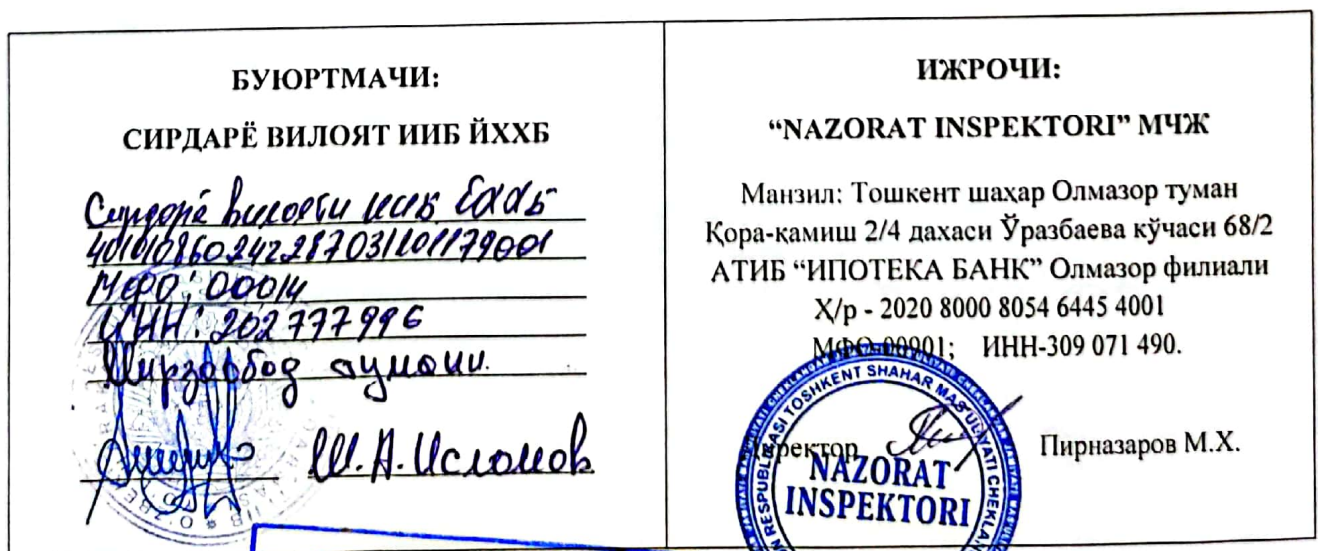 БУЮРТМАЧИ:
СИРДАРЁ ВИЛОЯТ ИИБ ЙХХБ
Сирдарё вилояти ИИБ
401010860242287031201179001
МФО: 00014
ИНН: 202777996
Мирзаобод тумани.
Ш.А.Исломов
ИЖРОЧИ:
“NAZORAT INSPEKTORI” МЧЖ
Манзил: Тошкент шаҳар Олмазор туман
Қора-қамиш 2/4 дахаси Ўразбаева кўчаси 68/2
АТИБ “ИПОТЕКА БАНК” Олмазор филиали
Ҳ/р - 2020 8000 8054 6445 4001
МФО-00901; ИНН-309 071 490.
Директор Пирназаров М.Х.
RESPUBLIKASI TOSHKENT SHAHAR MAS'ULIYATI CHEKLAN
NAZORAT
INSPEKTORI